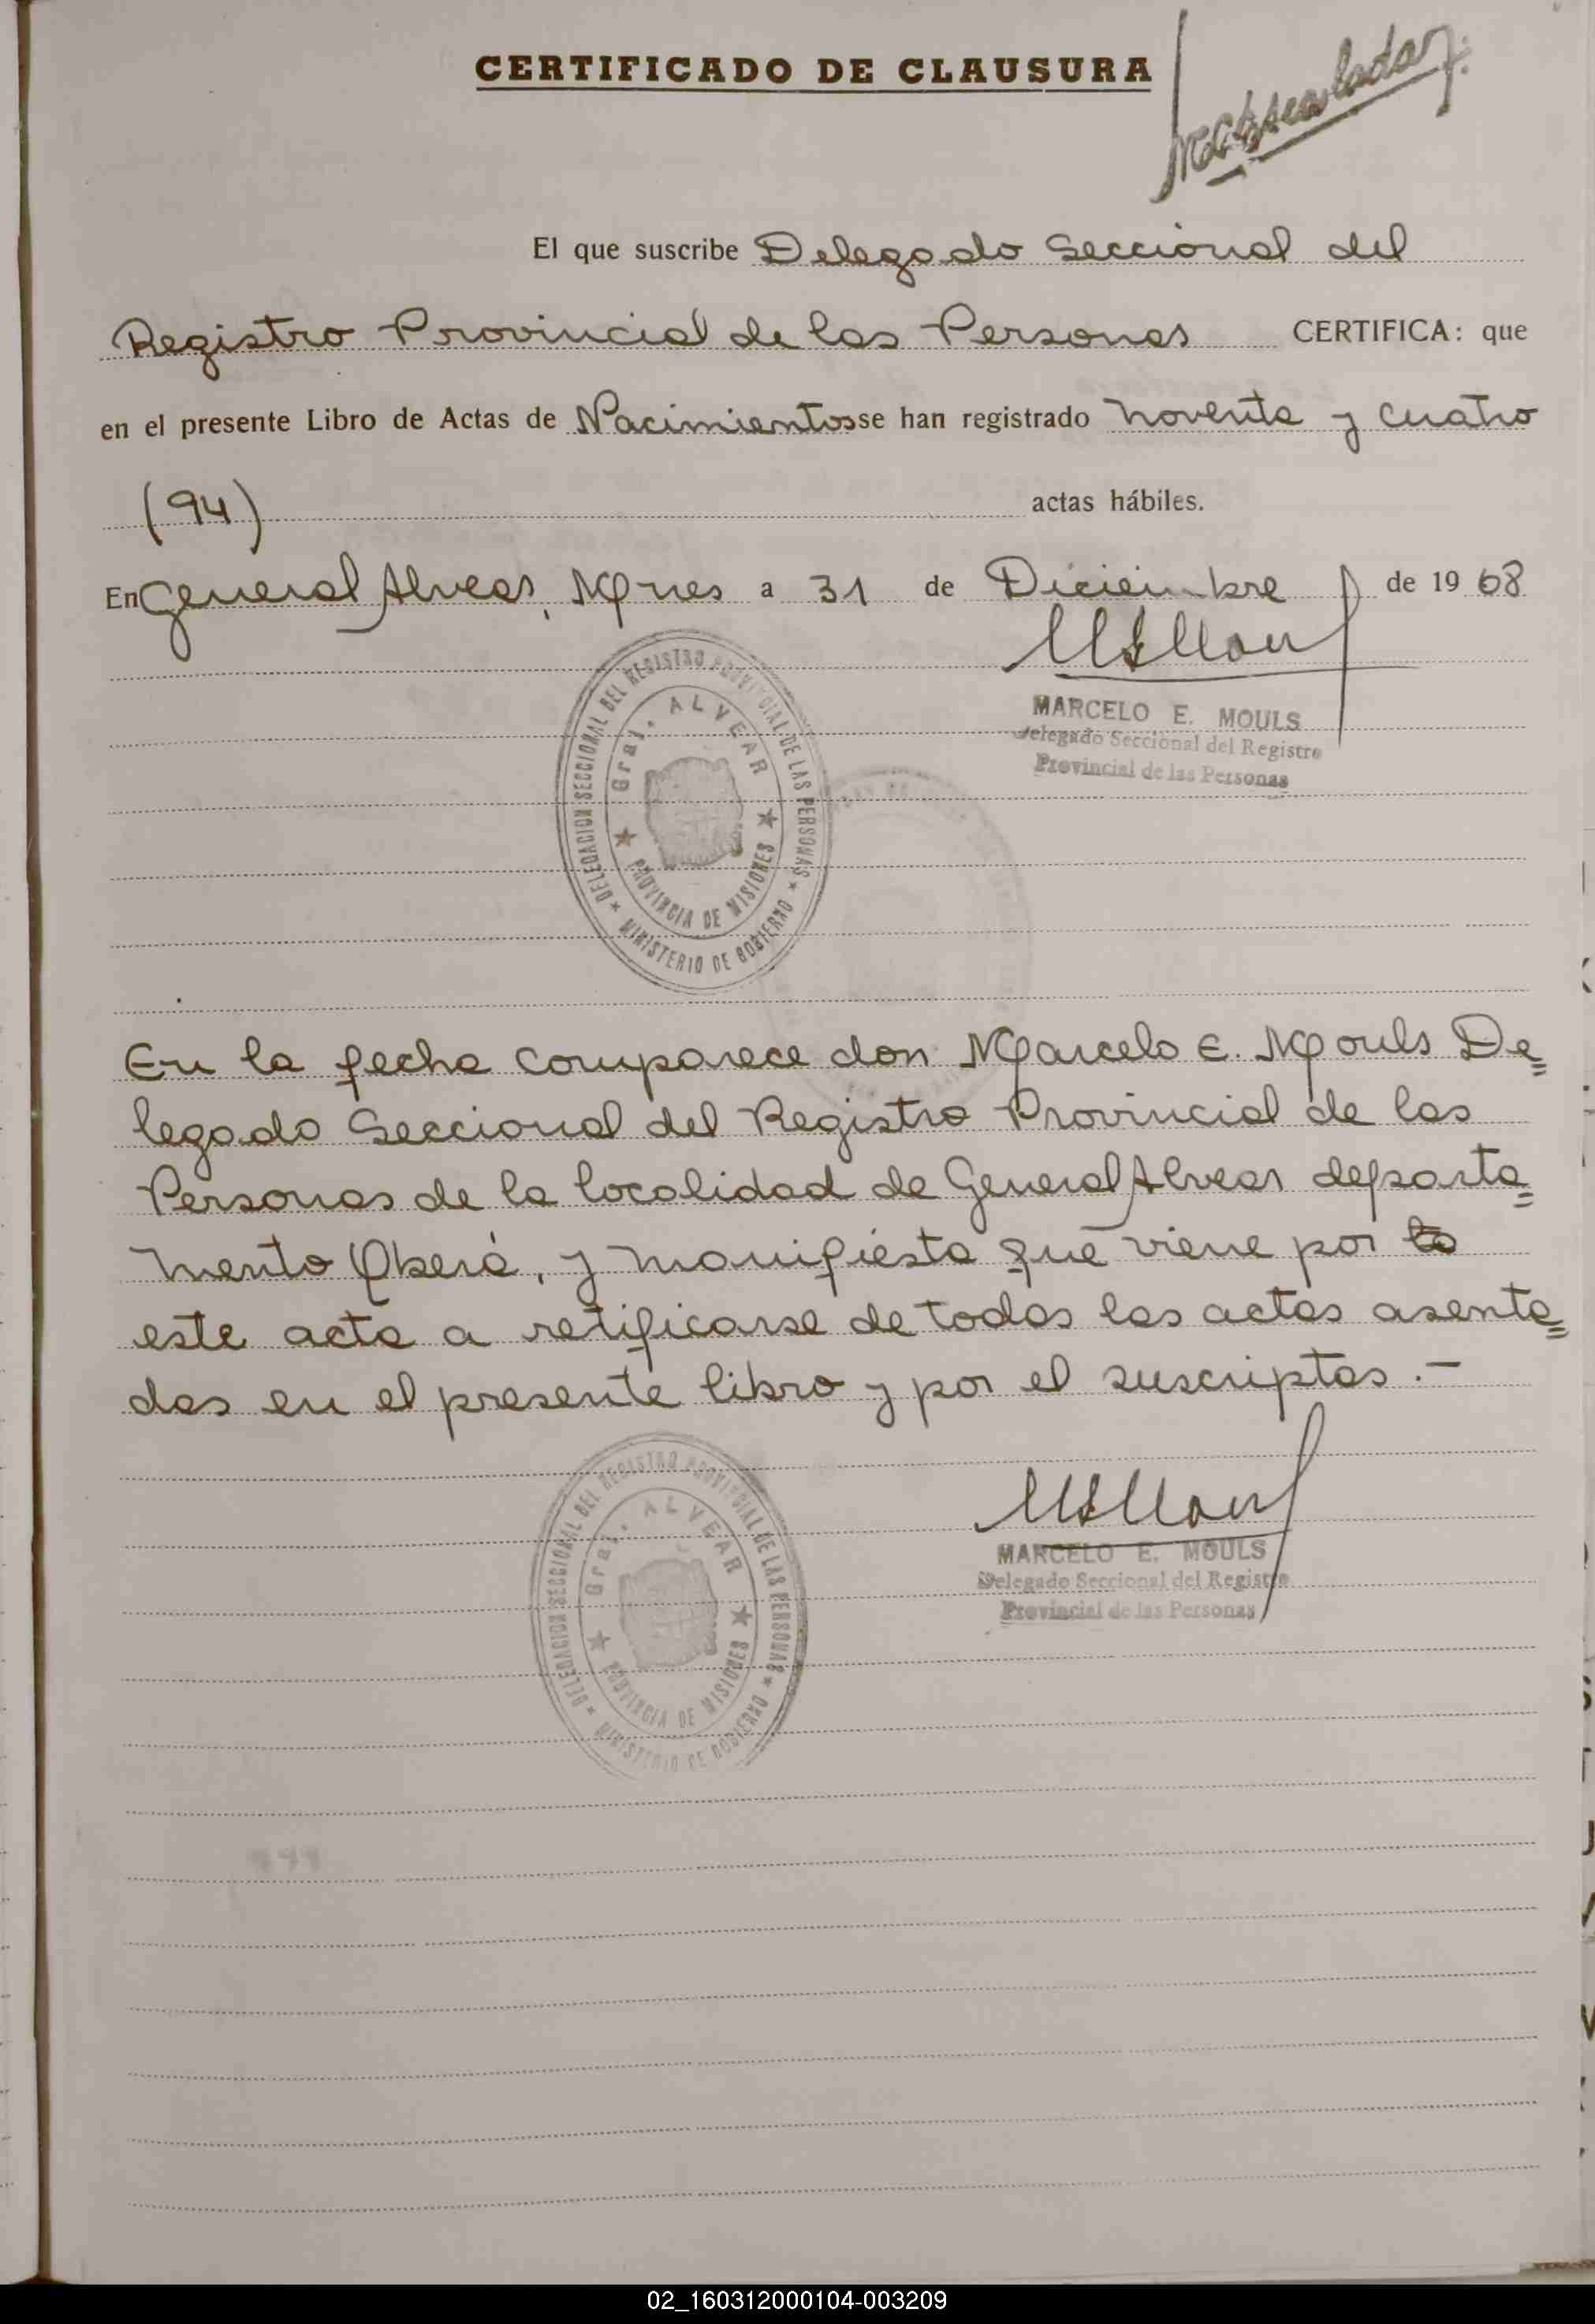 CERTIFICADO DE CLAUSURA
El que suscribe Delegado Seccional del
Registro Provincial de las Personas CERTIFICA: que
en el presente Libro de Actas de Nacimientos se han registrado noventa y cuatro
(94) actas hábiles.
En General Alvear, Mnes a 31 de Diciembre de 1968
DELEGACION SECCIONAL DEL REGISTRO PROVINCIAL DE LAS PERSONAS
Gral. ALVEAR
PROVINCIA DE MISIONES
MINISTERIO DE GOBIERNO
MARCELO E. MOULS
Delegado Seccional del Registro
Provincial de las Personas
En la fecha comparece don Marcelo E. Mouls De=
legado Seccional del Registro Provincial de las
Personas de la localidad de General Alvear departa=
mento Oberá, y manifiesta que viene por
este acta a retificarse de todas las actas asenta=
das en el presente libro y por el suscriptas.-
DELEGACION SECCIONAL DEL REGISTRO PROVINCIAL DE LAS PERSONAS
Gral. ALVEAR
PROVINCIA DE MISIONES
MINISTERIO DE GOBIERNO
MARCELO E. MOULS
Delegado Seccional del Registro
Provincial de las Personas
02_160312000104-003209